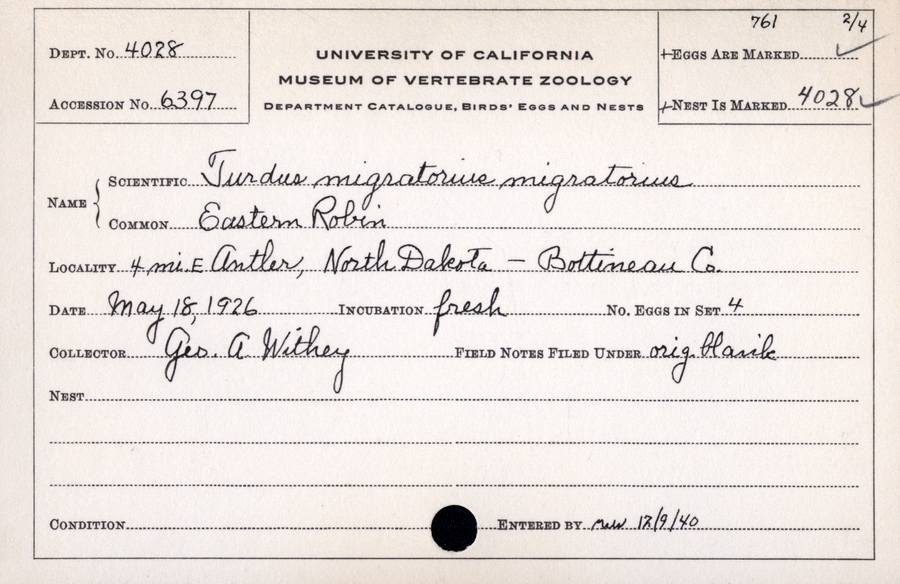 761 2/4
Dept. No. 4028
UNIVERSITY OF CALIFORNIA
+Eggs Are Marked ✓
MUSEUM OF VERTEBRATE ZOOLOGY
Accession No. 6397
Department Catalogue, Birds' Eggs and Nests
+Nest Is Marked 4028 ✓
Name { Scientific Turdus migratorius migratorius
Common Eastern Robin
Locality 4 mi. E Antler, North Dakota – Bottineau Co.
Date May 18, 1926 Incubation fresh No. Eggs in Set 4
Collector Geo. A Withey Field Notes Filed Under orig. blank
Nest
Condition Entered by 12/9/40